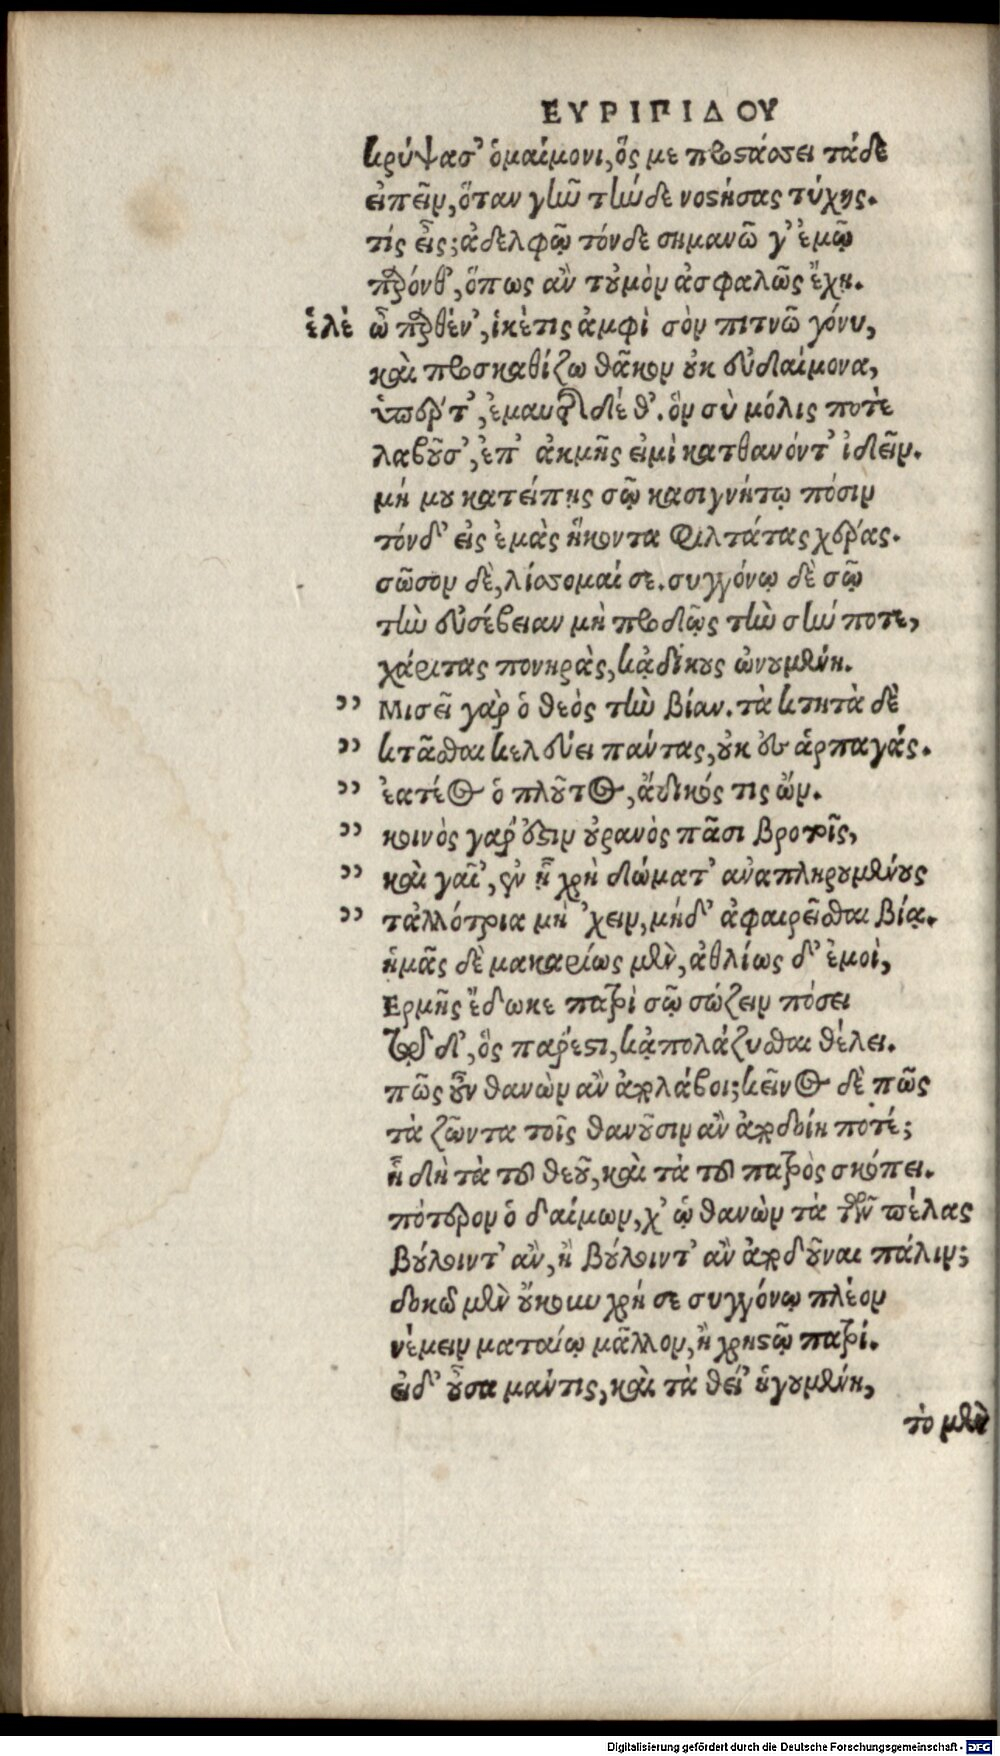 ΕΥΡΙΠΙΔΟΥ
κρύψασ' ὁμαίμονι, ὅς με προστάσσει τάδε
εἰπεῖν, ὅταν γῆν τήνδε νοστήσας τύχῃς.
τίς εἶς; ἀδελφῷ τόνδε σημανῶ γ' ἐμῷ
παρόνθ', ὅπως ἂν τοὐμὸν ἀσφαλῶς ἔχῃ.
ἑλὲ ὦ παρθέν', ἱκέτις ἀμφὶ σὸν πιτνῶ γόνυ,
καὶ προσκαθίζω θᾶκον οὐκ εὐδαίμονα,
ὑπέρ τ' ἐμαυτῆς τοῦδέ θ'. ὃν σὺ μόλις ποτὲ
λαβοῦσ', ἐπ' ἀκμῆς εἰμὶ κατθανόντ' ἰδεῖν.
μή μου κατείπῃς σῷ κασιγνήτῳ πόσιν
τόνδ' εἰς ἐμὰς ἥκοντα φιλτάτας χέρας.
σῶσον δὲ, λίσσομαί σε. συγγόνῳ δὲ σῷ
τὴν εὐσέβειαν μὴ προδῷς τὴν σήν ποτε,
χάριτας πονηρὰς, κἀδίκους ὠνουμένη.
" Μισεῖ γὰρ ὁ θεὸς τὴν βίαν. τὰ κτητὰ δὲ
" κτᾶσθαι κελεύει πάντας, οὐκ ἐς ἁρπαγάς.
" ἐατέος ὁ πλοῦτος, ἄδικός τις ὤν.
" κοινὸς γάρ ἐστιν οὐρανὸς πᾶσι βροτοῖς,
" καὶ γαῖ', ἐν ᾗ χρὴ δώματ' ἀναπληρουμένους
" τἀλλότρια μὴ 'χειν, μήδ' ἀφαιρεῖσθαι βίᾳ.
ἡμᾶς δὲ μακαρίως μὲν, ἀθλίως δ' ἐμοὶ,
Ερμῆς ἔδωκε πατρὶ σῷ σώζειν πόσει
τῷδ', ὃς πάρεστι, κἀπολάζυσθαι θέλει.
πῶς οὖν θανὼν ἂν ἀπολάβοι; κεῖνος δὲ πῶς
τὰ ζῶντα τοῖς θανοῦσιν ἂν ἀποδοίη ποτέ;
ἤδη τὰ τοῦ θεοῦ, καὶ τὰ τοῦ πατρὸς σκόπει.
πότερον ὁ δαίμων, χ' ὡ θανὼν τὰ τῶν πέλας
βούλοιντ' ἂν, ἢ βούλοιντ' ἂν ἀποδοῦναι πάλιν;
δοκῶ μὲν οὔκουν χρή σε συγγόνῳ πλέον
νέμειν ματαίῳ μᾶλλον, ἢ χρηστῷ πατρί.
εἰ δ' οὖσα μάντις, καὶ τὰ θεῖ' ἡγουμένη,
τὸ μὲν
Digitalisierung gefördert durch die Deutsche Forschungsgemeinschaft - DFG